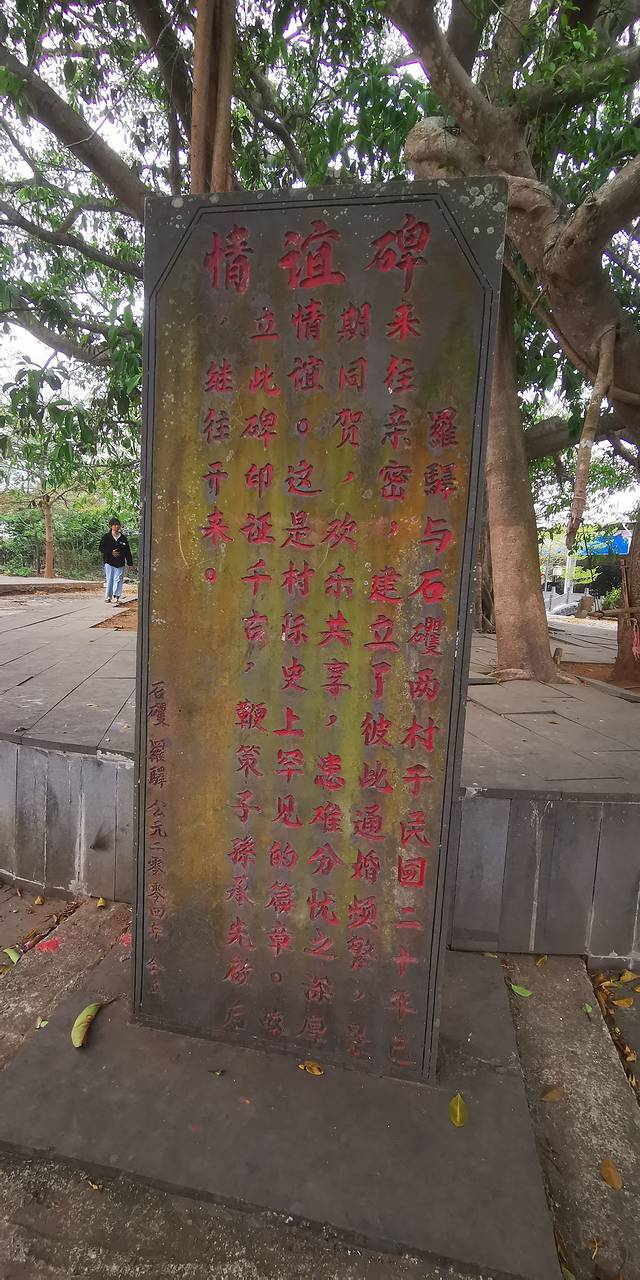 情谊碑
羅驛与石矍两村于民国二十年已
来往亲密，建立了彼此通婚频繁，星
期同贺，欢乐共享，患难分忧之深厚
情谊。这是村际史上罕见的篇章。故
立此碑印证千古，鞭策子孫承先啟后
，继往开来。
石矍 羅驛 公元二零零四年 仝立